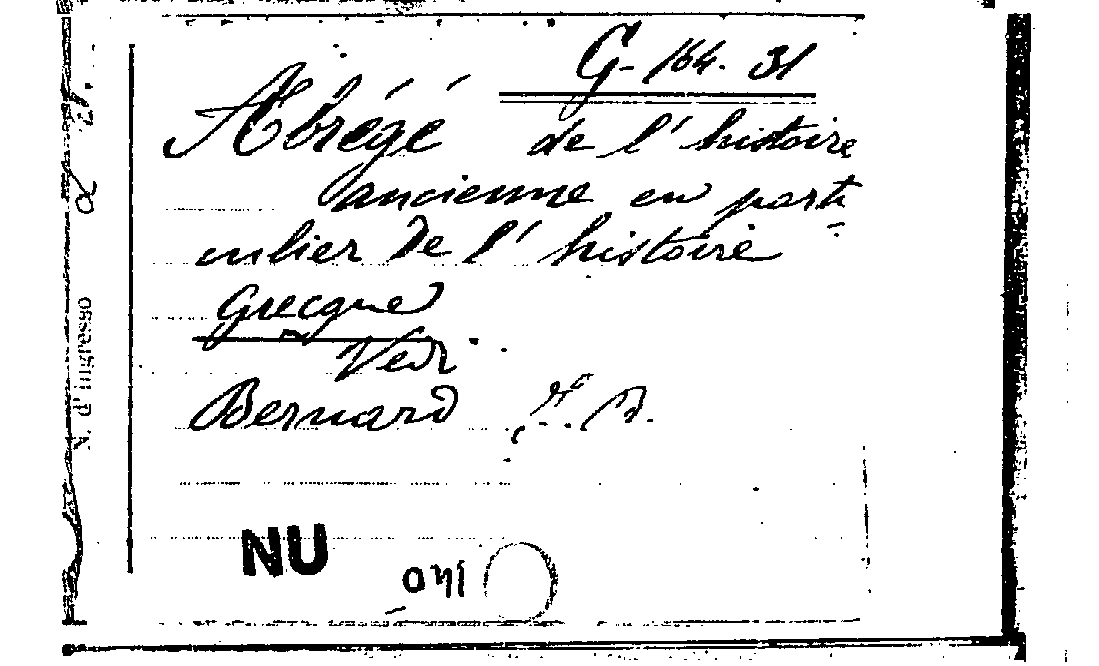 G- 164. 31
Abrégé de l'histoire
ancienne en parti
culier de l'histoire
Grecque
Vedi
Bernard
N. d'ingresso
NU